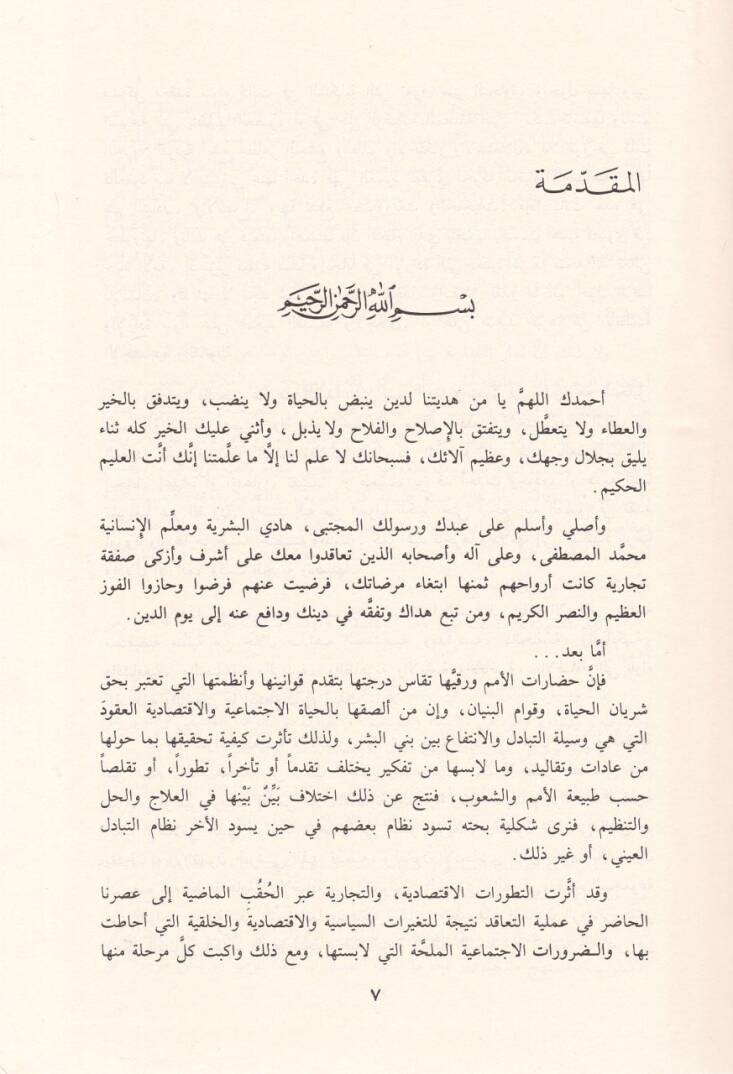 المقَدّمَة
بِسْمِ ٱللَّهِ ٱلرَّحْمَٰنِ ٱلرَّحِيمِ
أحمدك اللهمَّ يا من هديتنا لدين ينبض بالحياة ولا ينضب، ويتدفق بالخير
والعطاء ولا يتعطَّل، ويتفتق بالإِصلاح والفلاح ولا يذبل، وأثني عليك الخير كله ثناء
يليق بجلال وجهك، وعظيم آلائك، فسبحانك لا علم لنا إلاَّ ما علَّمتنا إنَّك أنَّت العليم
الحكيم.
وأصلي وأسلم على عبدك ورسولك المجتبى، هادي البشرية ومعلِّم الإِنسانية
محمَّد المصطفى، وعلى آله وأصحابه الذين تعاقدوا معك على أشرف وأزكى صفقة
تجارية كانت أرواحهم ثمنها ابتغاء مرضاتك، فرضيت عنهم فرضوا وحازوا الفوز
العظيم والنصر الكريم، ومن تبع هداك وتفقَّه في دينك ودافع عنه إلى يوم الدين.
أمَّا بعد...
فإنَّ حضارات الأمم ورقيَّها تقاس درجتها بتقدم قوانينها وأنظمتها التي تعتبر بحق
شريان الحياة، وقوام البنيان، وإن من ألصقها بالحياة الاجتماعية والاقتصادية العقودَ
التي هي وسيلة التبادل والانتفاع بين بني البشر، ولذلك تأثرت كيفية تحقيقها بما حولها
من عادات وتقاليد، وما لابسها من تفكير يختلف تقدماً أو تأخراً، تطوراً، أو تقلصاً
حسب طبيعة الأمم والشعوب، فنتج عن ذلك اختلاف بَيِّنٌ بَيْنها في العلاج والحل
والتنظيم، فنرى شكلية بحته تسود نظام بعضهم في حين يسود الأخر نظام التبادل
العيني، أو غير ذلك.
وقد أثَّرت التطورات الاقتصادية، والتجارية عبر الحُقُبِ الماضية إلى عصرنا
الحاضر في عملية التعاقد نتيجة للتغيرات السياسية والاقتصادية والخلقية التي أحاطت
بها، والضرورات الاجتماعية الملحَّة التي لابستها، ومع ذلك واكبت كلَّ مرحلة منها
٧